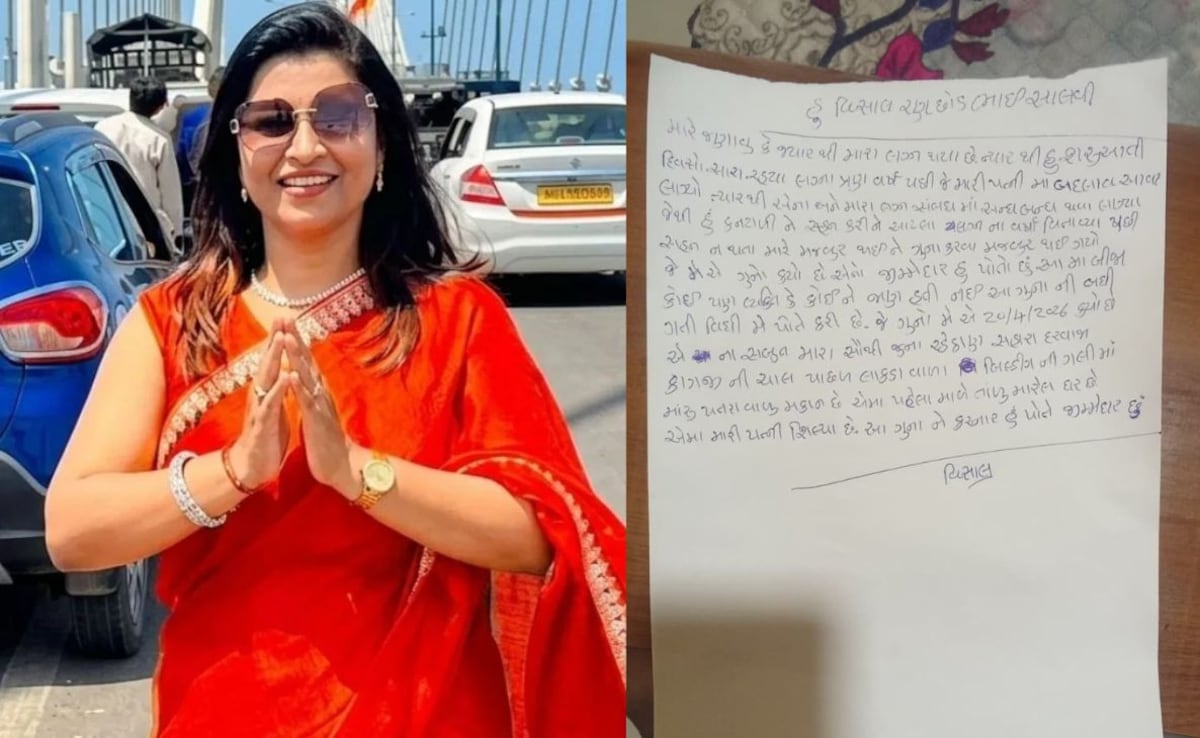 હું વિશાલ રણછોડભાઈ સાલવી
મારે જણાવુ કે જ્યાર થી મારા લગ્ન થયા છે ત્યાર થી હું શરુઆતી
દિવસો સારા રહ્યા લગ્ના ત્રણ વર્ષ પછી જે મારી પત્ની મા બદલાવ આવા
લાગ્યો ત્યાર થી એના અને મારા લગ્ન સંબંધ માં અનબન થવા લાગ્યા
જેથી હું કનટાળી ને સહન કરીને આટલા લગ્ન ના વર્ષો વિતાવ્યા પછી
સહન ન થતા મારે મજબુર થઈ ને ગુના કરવા મજબુર થઈ ગયો
જે મે એ ગુનો કર્યો છે એનો જીમ્મેદાર હું પોતે છું આ મા બીજા
કોઈ પણ વ્યક્તિ કે કોઈ ને જાણ હતી નઈ આ ગુના ની બધી
ગતી વિધી મે પોતે કરી છે. જે ગુનો મે એ 20/4/2026 કર્યો છે
એ ના સબુત મારા સૌથી જુના રહેઠાણ સહારા દરવાજા
કાગજી ની ચાલ પાછળ લાકડા વાળા બિલ્ડીંગ ની ગલી માં
મારુ પતરા વાળુ મકાન છે એમા પહેલા માળે તાળુ મારેલ ઘર છે
એમા મારી પત્ની શિલ્પા છે. આ ગુના ને કરનાર હું પોતે જીમ્મેદાર છું
વિશાલ